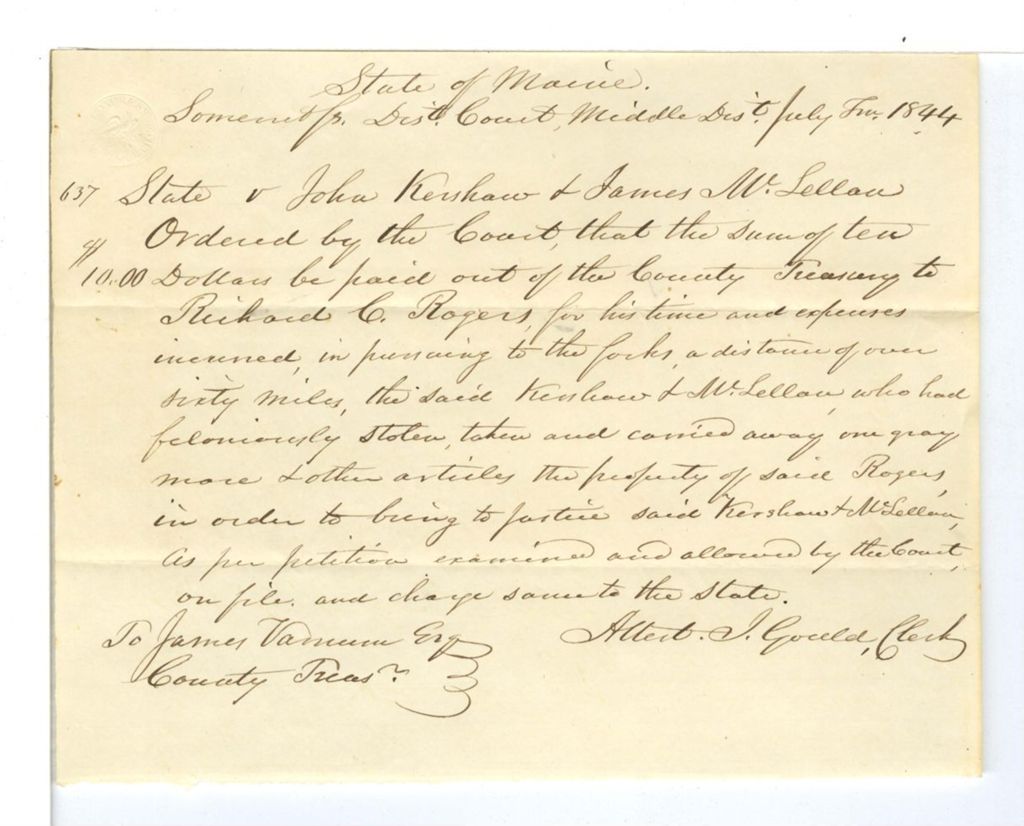 State of Maine.
Somerset ss. Dist. Court, Middle Dist. July Tm. 1844
637 State v John Kershaw & James Mc. Lellan
Ordered by the Court, that the sum of ten
10.00 Dollars be paid out of the County Treasury to
Richard C. Rogers, for his time and expenses
incurred, in pursuing to the forks, a distance of over
sixty miles, the said Kershaw & Mc. Lellan, who had
feloniously stolen, taken and carried away one gray
mare & other articles the property of said Rogers,
in order to bring to justice said Kershaw & McLellan,
As per petition examined and allowed by the Court,
on file. and charge same to the State.
To James Varnum Esq
County Treasr.
Attest. J. Gould, Clerk